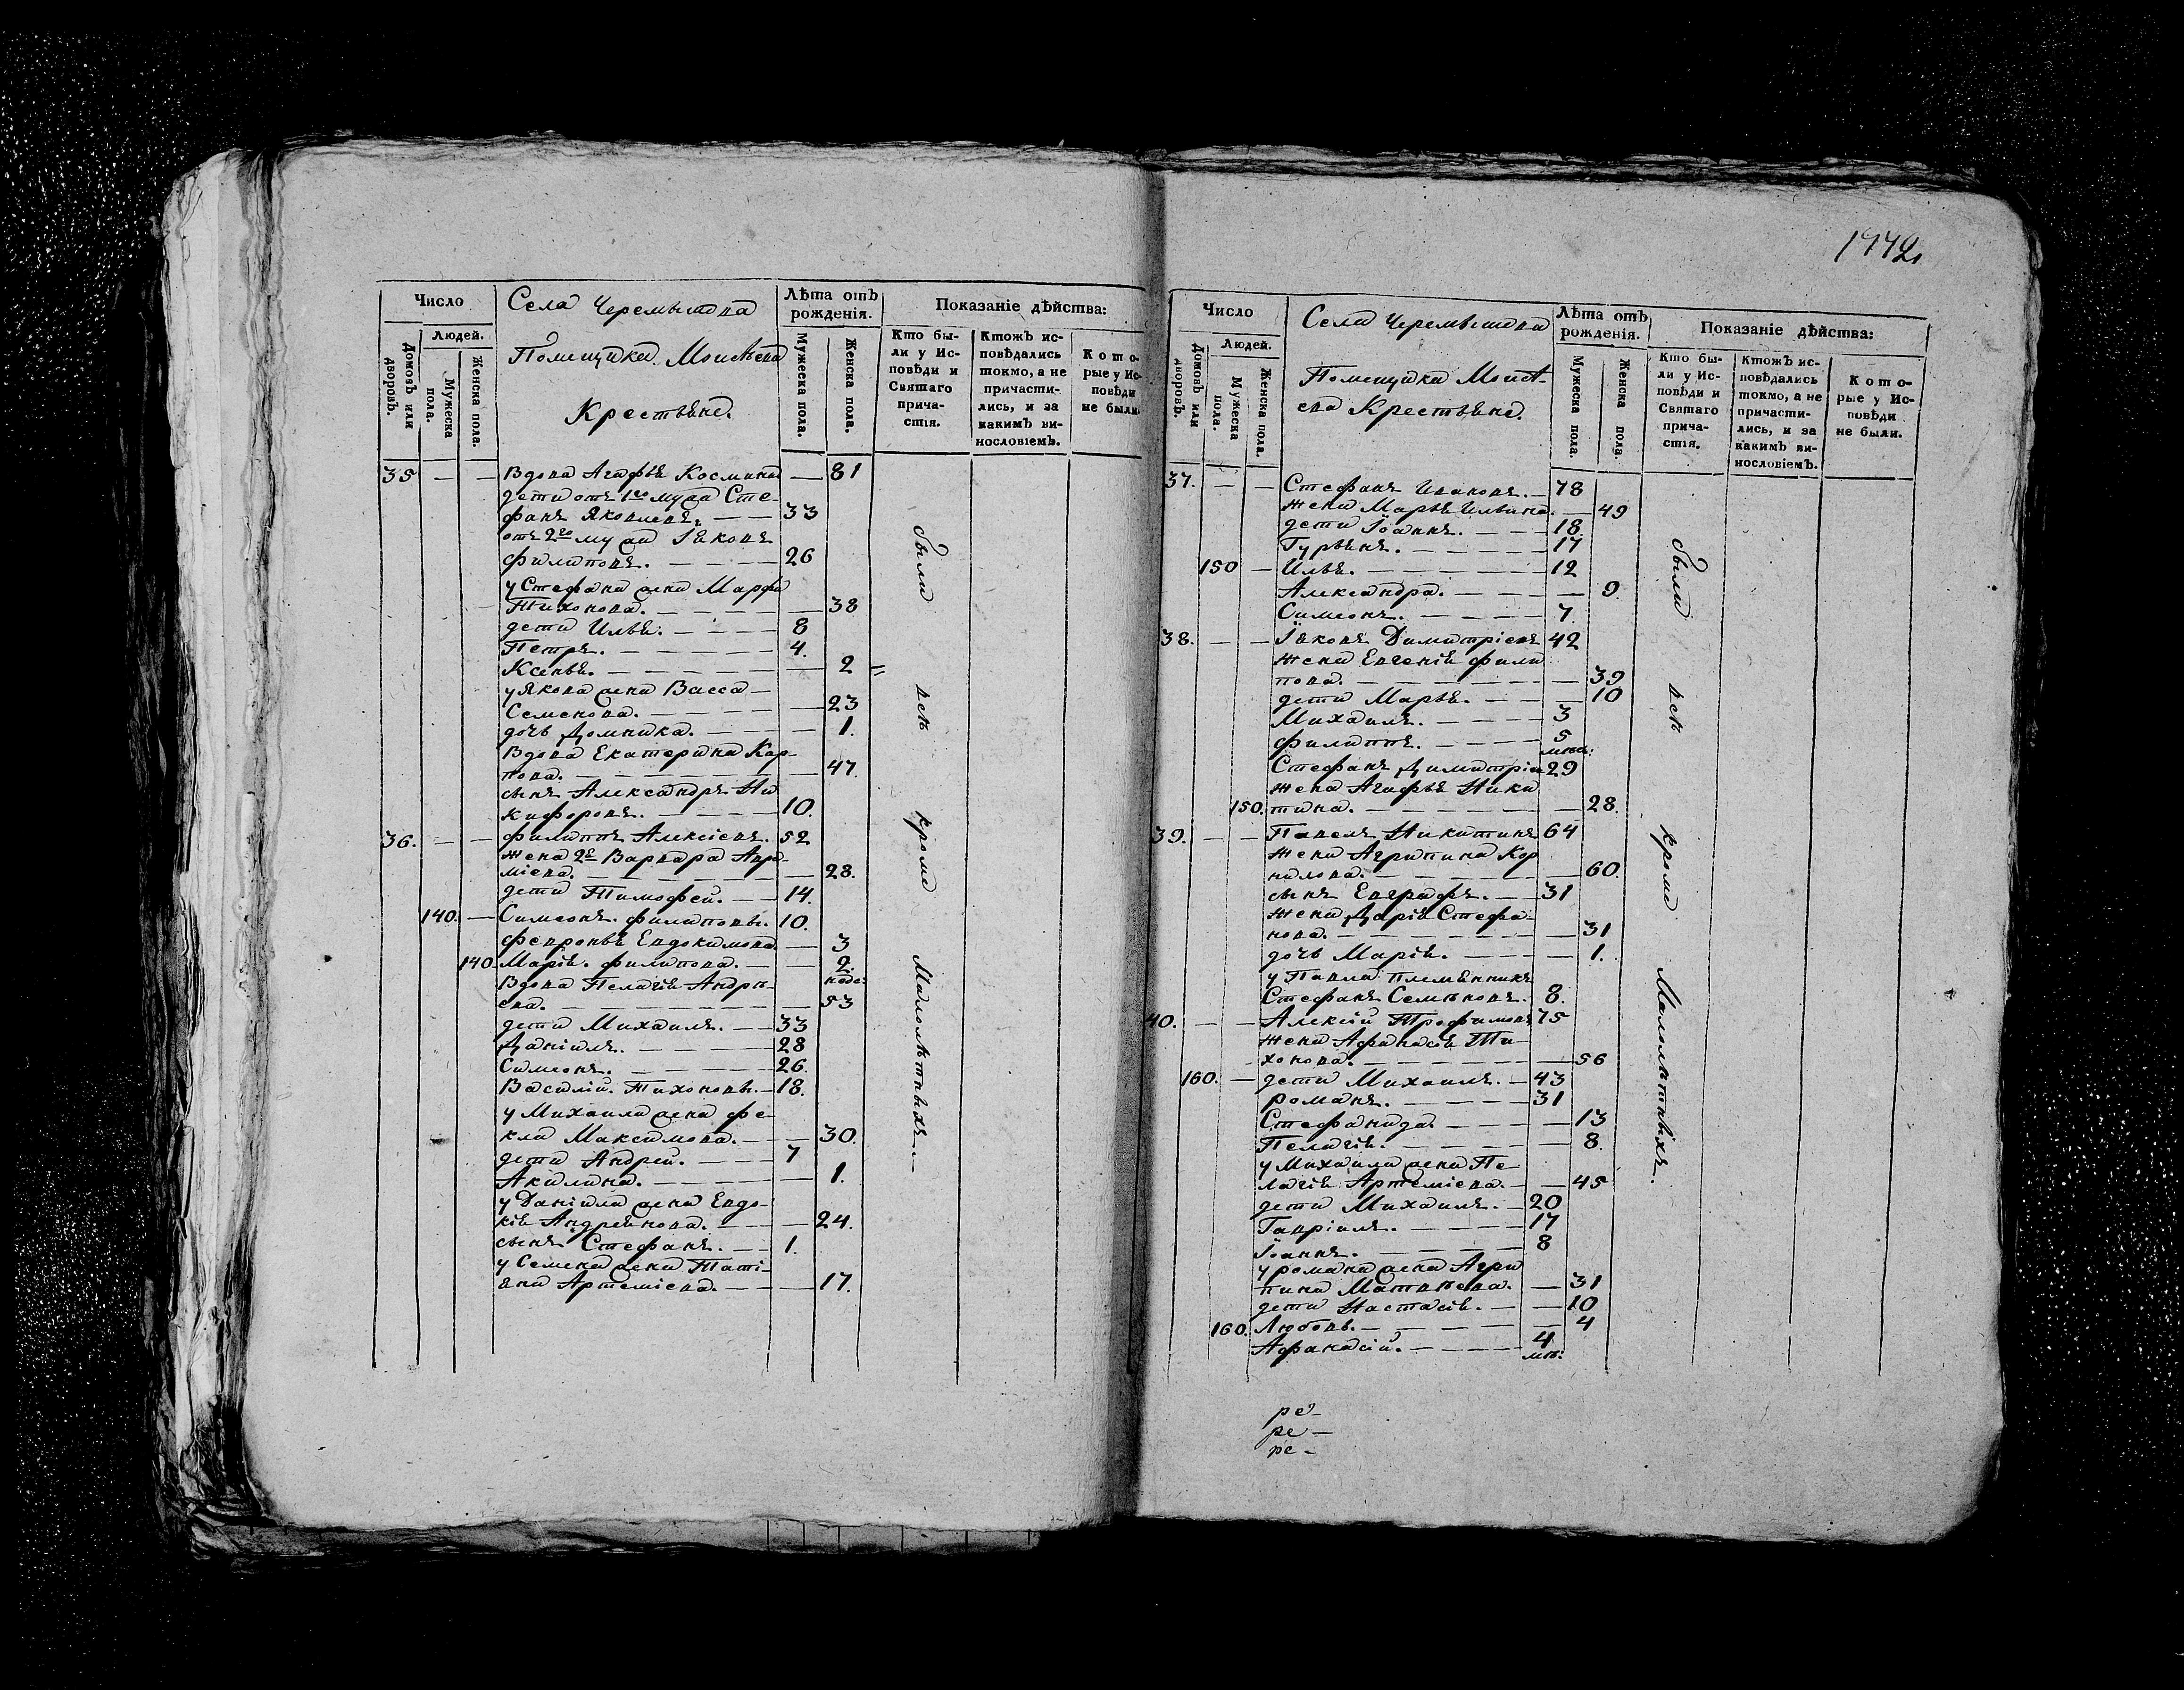 1772.
Число
Людей.
Домовъ или дворовъ.
Мужеска пола.
Женска пола.
Села Черемышова
Помещика Моисѣева
Крестьяне.
Лѣта отъ рожденія.
Мужеска пола.
Женска пола.
Показаніе дѣйства:
Кто бы-
ли у Ис-
повѣди и
Святаго
прича-
стія.
Ктожъ ис-
повѣдались
токмо, а не
причасти-
лись, и за
какимъ ви-
нословіемъ.
Кото-
рые у Ис-
повѣди
не были.
35 — — Вдова Агафья Космина — 81
дети отъ 1го мужа Сте-
фанъ Яковлевъ. — — 33
отъ 2го мужа Іаковъ
Филиповъ. — — — 26
у Стефана жена Марфа
Тихонова. — — — — 38
дети Илья. — — — 8
Петръ. — — — — 4.
Ксенья. — — — — — 2
у Якова жена Васса
Семенова. — — — — 23
дочь Домника. — — — 1.
Вдова Екатерина Кар-
пова. — — — — — 47.
сынъ Александръ Ни
кифоровъ. — — — 10.
36. — — Филиппъ Алексіевъ. 52
жена 2я Варвара Авра-
міева. — — — — — 28.
дети Тимофей. — — 14.
140. — Симеонъ. Филиповы. 10.
Февронья Евдокимова. — 3
140. Марія. Филипова. — — 2.
неде:
Вдова Пелагія Андрѣ-
ева. — — — — — 53
дети Михаилъ. — — 33
Даніилъ. — — — — 28
Симеонъ. — — — — 26.
Василій. Тихоновы. — 18.
у Михаила жена Фе-
кла Максимова. — — — 30.
дети Андрей. — — — 7
Акилина. — — — — — 1.
у Даніила жена Евдо-
кія Андреянова. — — — 24.
сынъ Стефанъ. — — 1.
у Семена жена Таті-
ана Артеміева. — — — 17.
были всѣ кроме Малолѣтныхъ.
Число
Людей.
Домовъ или дворовъ.
Мужеска пола.
Женска пола.
Села Черемышова
Помещика Моисѣ-
ева Крестьяне.
Лѣта отъ рожденія.
Мужеска пола.
Женска пола.
Показаніе дѣйства:
Кто бы-
ли у Ис-
повѣди и
Святаго
прича-
стія.
Ктожъ ис-
повѣдались
токмо, а не
причасти-
лись, и за
какимъ ви-
нословіемъ.
Кото-
рые у Ис-
повѣди
не были.
37. — — Стефанъ Ивановъ. — 78
жена Марья Ильина. — 49
дети Іоаннъ. — — — 18.
Гурьянъ. — — — — 17
150 — Илья. — — — — — 12
Александра. — — — — 9.
Симеонъ. — — — — 7.
38. — — Іаковъ Димитріевъ 42
жена Евгенія Фили
пова. — — — — — — 39
дети Марья. — — — — 10
Михаилъ. — — — — 3
Филиппъ. — — — — 5
мѣся:
Стефанъ Димитріев 29
жена Агафья Ники
150. тина. — — — — — 28.
39. — — Павелъ Никитинъ 64
жена Агрипина Кор
нилова. — — — — — 60.
сынъ Евграфъ. — — 31
жена Дарія Стефа-
нова. — — — — — — 31
дочь Марія. — — — — 1.
у Павла племянникъ
Стефанъ Семѣновъ. 8.
40. — — Алексій Трофимовъ 75
жена Афанасія Ти-
хонова. — — — — — 56
160. — дети Михаилъ. — 43
Романъ. — — — — 31
Стефанида. — — — — 13
Пелагія. — — — — — 8.
у Михаила жена Пе-
лагія Артеміева. — — 45
дети Михаилъ. — 20
Гавріилъ. — — — — 17
Іоаннъ. — — — — — 8
у Романа жена Агри
пина Матвѣева. — — 31
дети Настасія. — — — 10
160. Любовь. — — — — — 4
Афанасій. — — — — 4
мѣ:
были всѣ кроме Малолѣтныхъ.
ре —
ре —
ре —